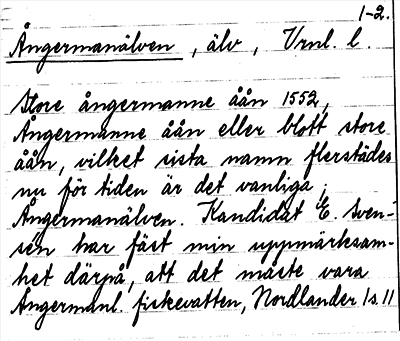 1-2.
Ångermanälven, älv, Vrnl. l.
Store ångermanne åån 1552,
Ångermanne åån eller blott store
åån, vilket sista namn flerstädes
nu för tiden är det vanliga;
Ångermanälven. Kandidat E. Sven-
sén har fäst min uppmärksam-
het därpå, att det måste vara
Ångermanl. fiskevatten, Nordlander 1 s. 11